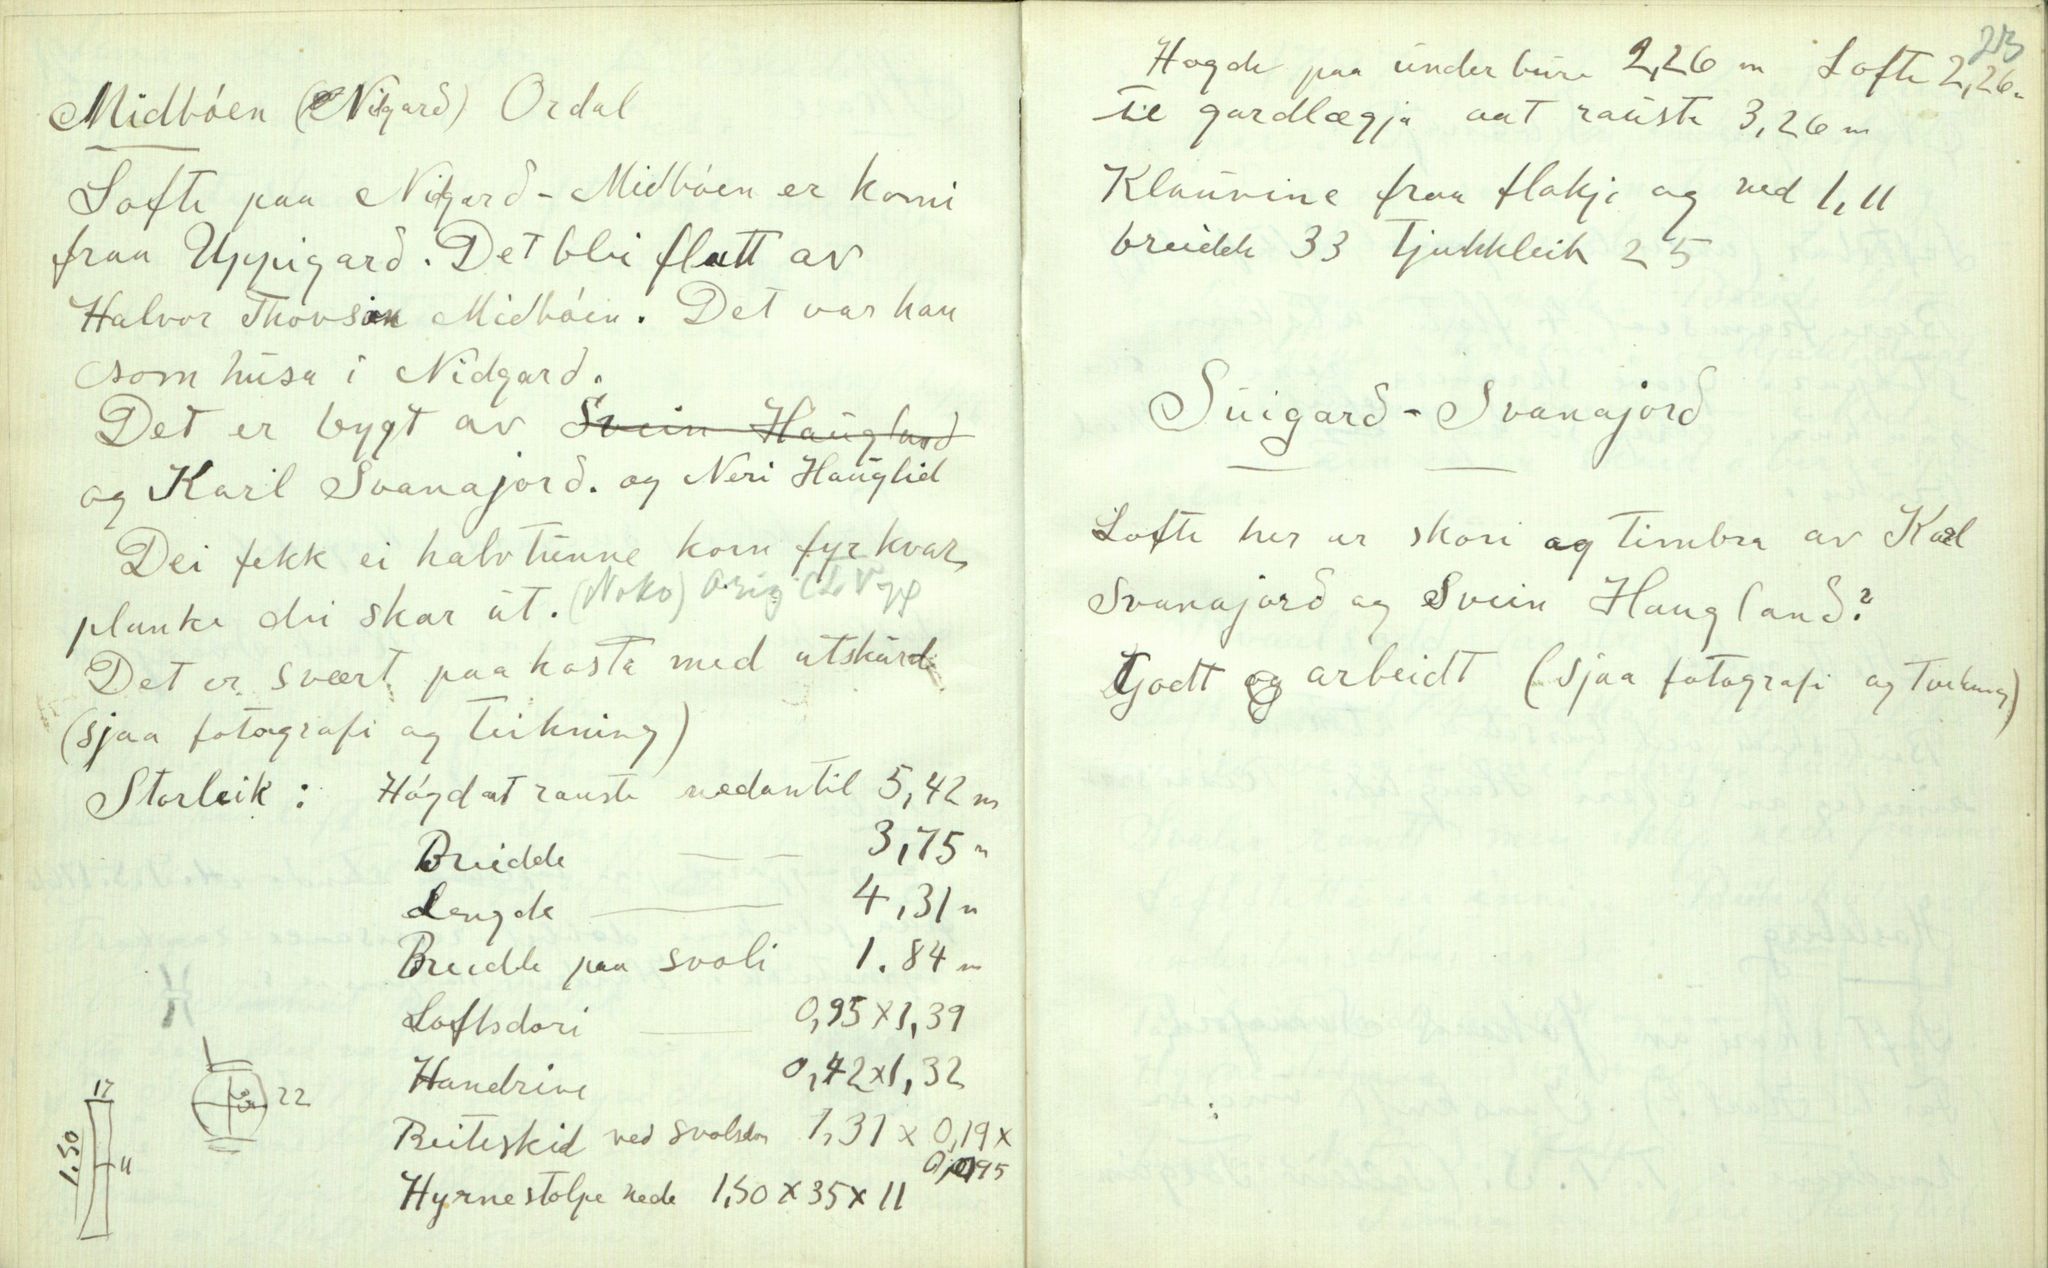 Midbøen (Nigard) Ordal
Lofte paa Nigard - Midbøen er komi
fraa Uppigard. Det blei flutt av
Halvor Thovson Midbøen. Det var han
som húsa i Nidgard.
Det er bygt av Svein Haugland
og Karl Svanajord. og Neri Hauglid
Dei fekk ei halvtunne korn fyr kvar
planke dei skar út. (Noko)
Det er svært paakosta med utskurd
(sjaa fotografi og teikning)
Storleik : Høgd at rauste nedantil 5,42 m
Breidde 3,75 m
Lengde 4,31 m
Breidde paa svali 1.84 m
Loftsdori 0,95 x 1,39
Handrive 0,42 x 1,32
Beiteskid ved svalsdor 1,31 x 0,19 x
0,095
Hyrnestolpe nede 1,50 x 35 x 11
17
1.50
11
22
23
Høgde paa underbure 2,26 m Lofte 2,26 m
til gardlægja aat rauste 3,26 m
Klauvine fraa flakje og ned 1,11
breidde 33 Tjukkleik 25
Súigard - Svanajord
Lofte her er skori og timbra av Karl
Svanajord og Svein Haugland?
Godt arbeidt (sjaa fotografi og teikning)